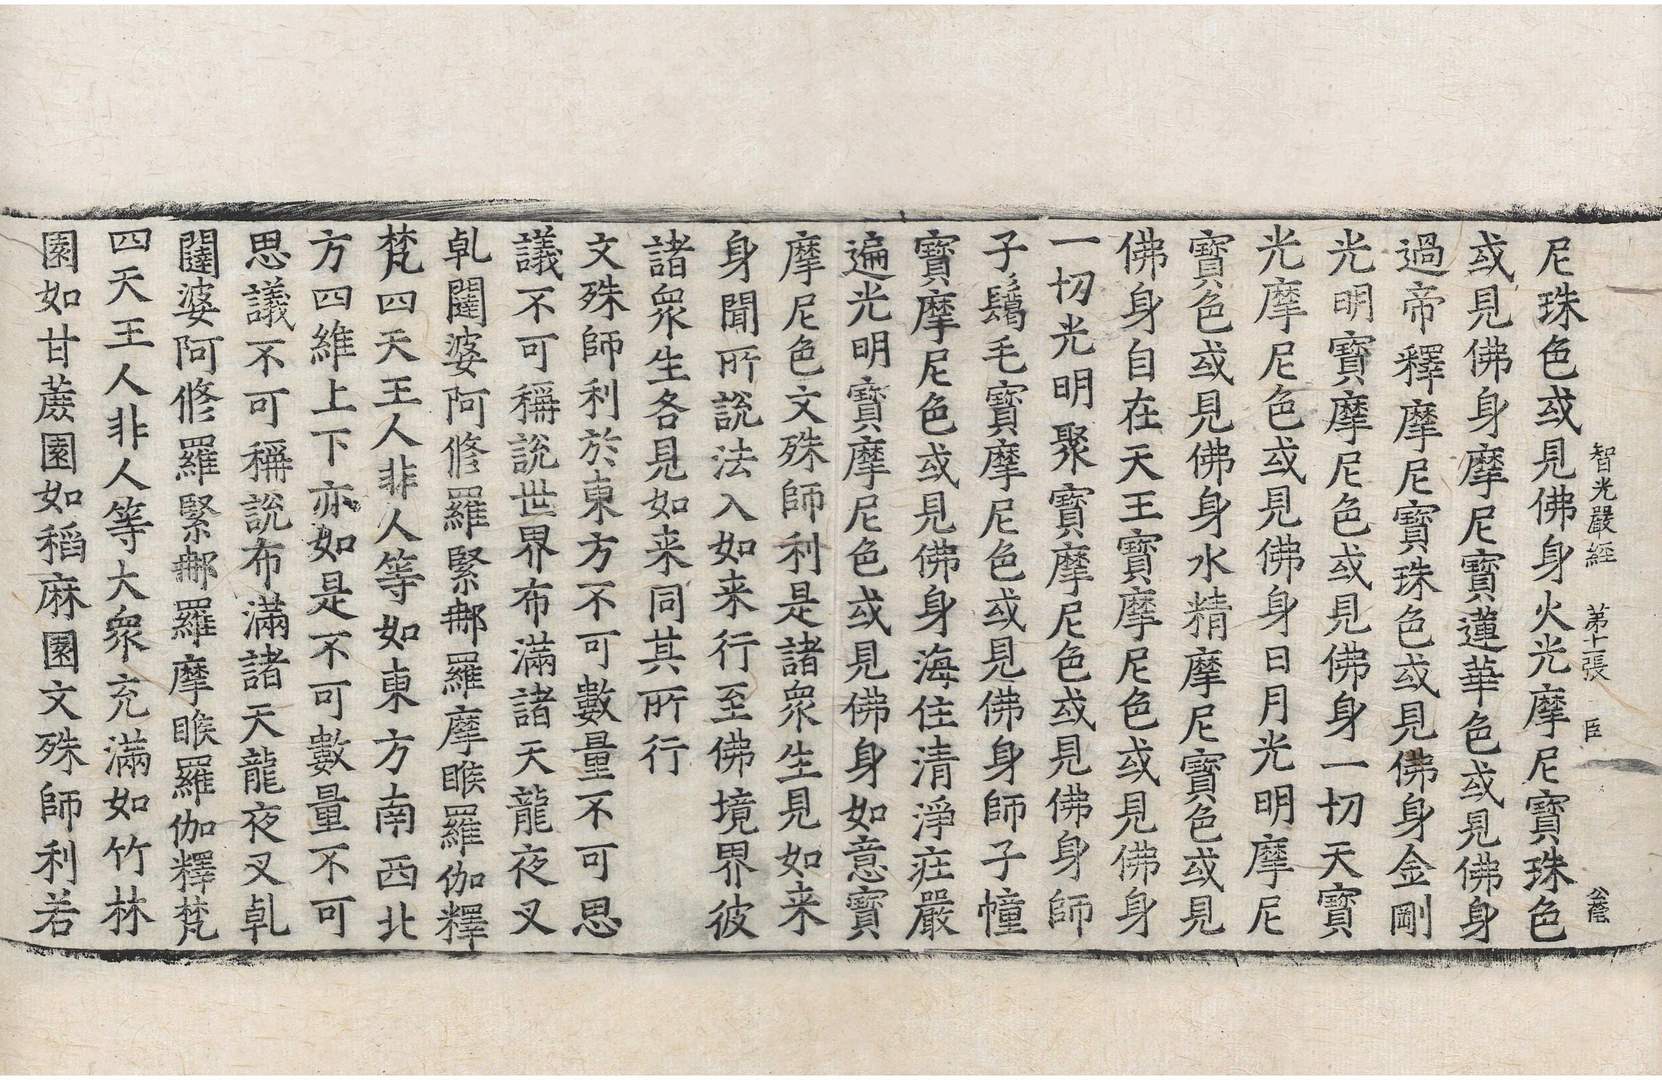 智光嚴経 第十一張 臣
尼珠色或見佛身火光摩尼寶珠色
或見佛身摩尼寶蓮華色或見佛身
過帝釋摩尼寶珠色或見佛身金剛
光明寶摩尼色或見佛身一切天寶
光摩尼色或見佛身日月光明摩尼
寶色或見佛身水精摩尼寶色或見
佛身自在天王寶摩尼色或見佛身
一切光明聚寶摩尼色或見佛身師
子鬘毛寶摩尼色或見佛身師子幢
寶摩尼色或見佛身海住清淨莊嚴
遍光明寶摩尼色或見佛身如意寶
摩尼色文殊師利是諸衆生見如来
身聞所說法入如来行至佛境界彼
諸衆生各見如来同其所行
文殊師利於東方不可數量不可思
議不可稱說世界布滿諸天龍夜叉
乹闥婆阿修羅緊那羅摩睺羅伽釋
梵四天王人非人等如東方南西北
方四維上下亦如是不可數量不可
思議不可稱說布滿諸天龍夜叉乹
闥婆阿修羅緊那羅摩睺羅伽釋梵
四天王人非人等大衆充滿如竹林
園如甘蔗園如稻麻園文殊師利若